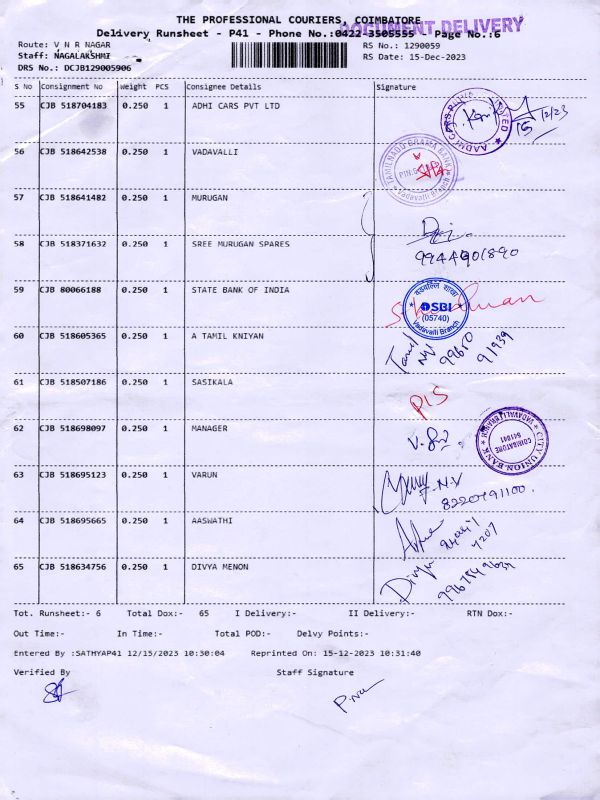 THE PROFESSIONAL COURIERS, COIMBATORE
DOCUMENT DELIVERY
Delivery Runsheet - P41 - Phone No.:0422-3505555 - Page No.:6
Route: V N R NAGAR
RS No.: 1290059
Staff: NAGALAKSHMI
RS Date: 15-Dec-2023
DRS No.: DCJB129005906
S No Consignment No Weight PCS Consignee Details Signature
55 CJB 518704183 0.250 1 ADHI CARS PVT LTD
15/12/23
56 CJB 518642538 0.250 1 VADAVALLI
TAMILNADU GRAMA BANK
Vadavalli Branch
57 CJB 518641482 0.250 1 MURUGAN
58 CJB 518371632 0.250 1 SREE MURUGAN SPARES
9944901890
59 CJB 80066188 0.250 1 STATE BANK OF INDIA
SBI
(05740)
Vadavalli Branch
60 CJB 518605365 0.250 1 A TAMIL KNIYAN
Tamil
99650
91939
61 CJB 518507186 0.250 1 SASIKALA
PIS
62 CJB 518698097 0.250 1 MANAGER
CITY UNION BANK
VADAVALLI BRANCH
COIMBATORE
641041
63 CJB 518695123 0.250 1 VARUN
64 CJB 518695665 0.250 1 AASWATHI
65 CJB 518634756 0.250 1 DIVYA MENON
Divya
Tot. Runsheet:- 6 Total Dox:- 65 I Delivery:- II Delivery:- RTN Dox:-
Out Time:- In Time:- Total POD:- Delvy Points:-
Entered By :SATHYAP41 12/15/2023 10:30:04 Reprinted On: 15-12-2023 10:31:40
Verified By Staff Signature